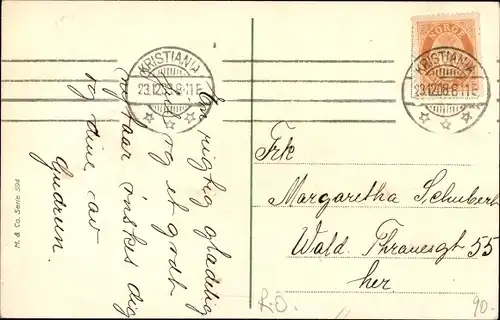 KRISTIANIA
23.12.09.8-11E
KRISTIANIA
23.12.09.8-11E
NORGE
En rigtig glædelig
jul og et godt
nyt aar önskes dig
og dine av
Gudrun.
M. & Co. Serie 594
Frk
Margaretha Schubert
Wald. Thranesgt 55
her
R.O.
90.-